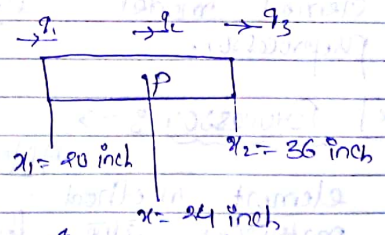 q₁ q₂ q₃
P
x₁ = 20 inch
x₂ = 36 inch
x = 24 inch